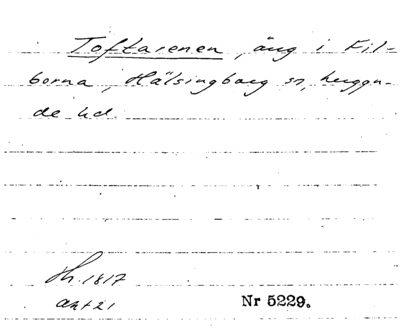 Toftarenen, äng i Fil-
borna, Hälsingborg sn, Luggu-
de hd.
Th. 1817
akt 21
Nr 5229.